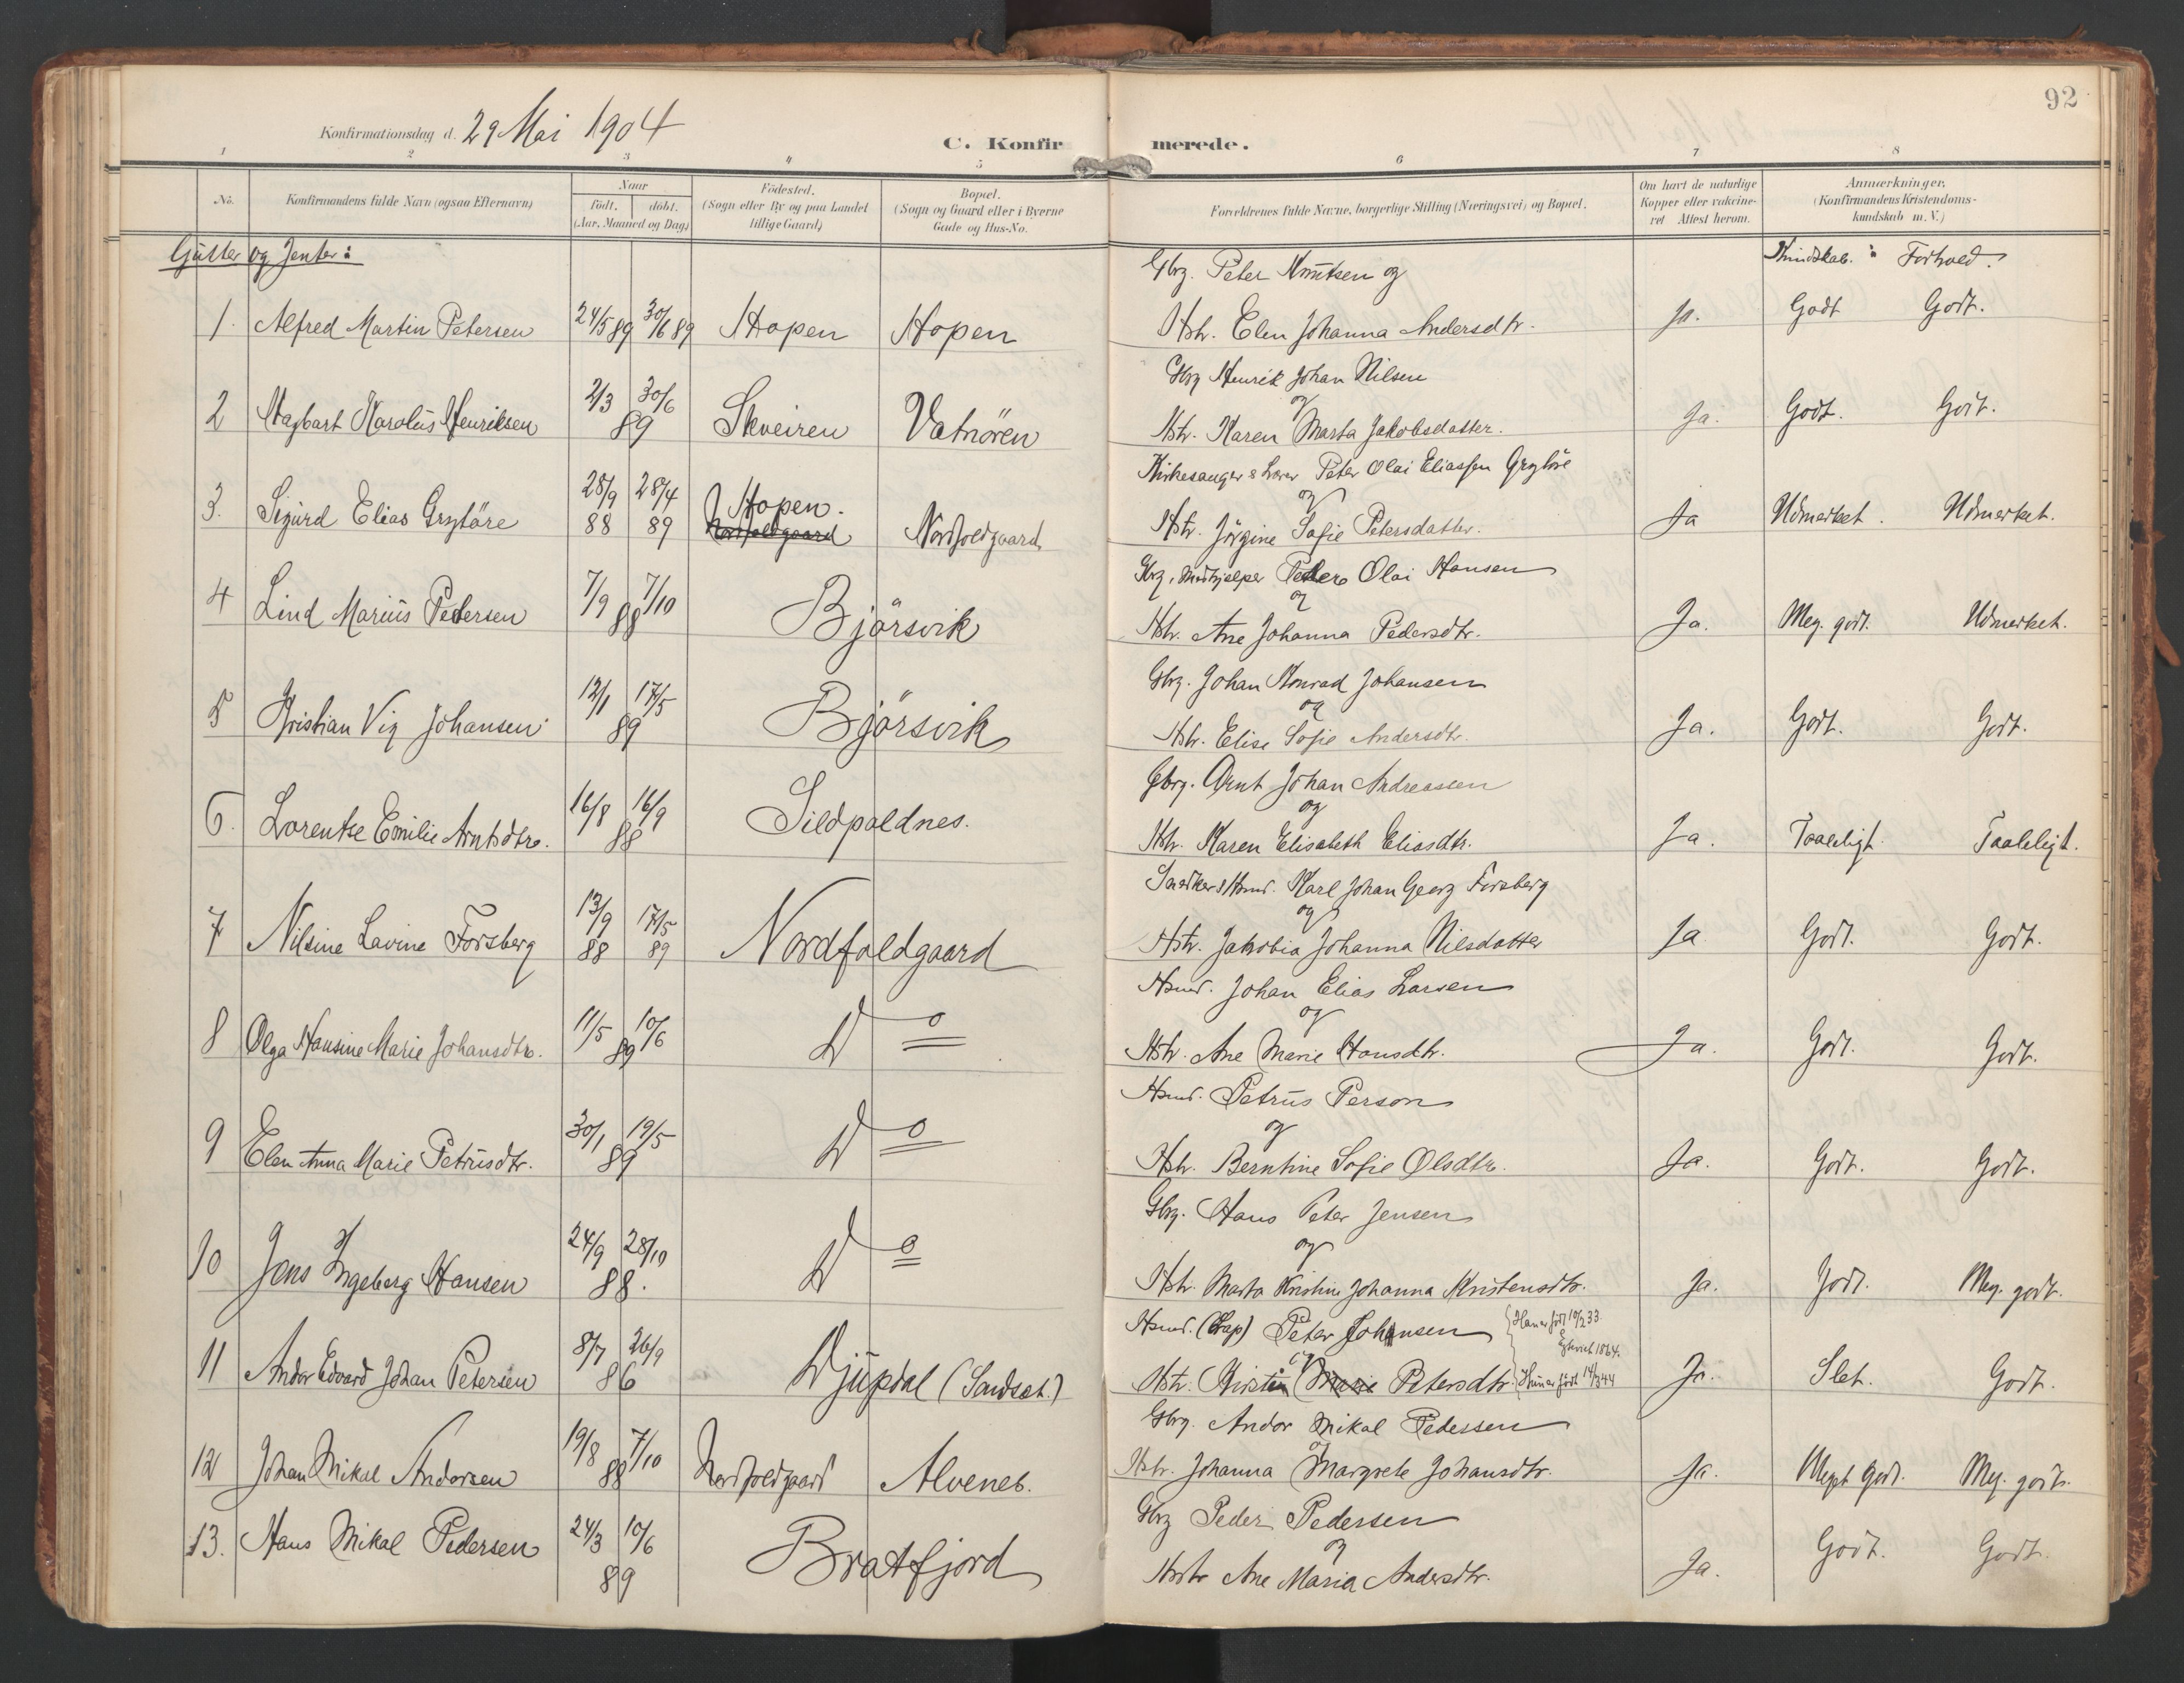 92
Konfirmationsdag d. 29 Mai 1904
C. Konfirmerede.
1 2 3 4 5 6 7 8
No.
Konfirmandens fulde Navn (ogsaa Efternavn)
Naar
født. døbt.
(Aar, Maaned og Dag)
Födested.
(Sogn eller By og paa Landet
tillige Gaard)
Bopæl.
(Sogn og Gaard eller i Byerne
Gade og Hus-No.
Forældrenes fulde Navne, borgerlige Stilling (Næringsvei) og Bopæl.
Om havt de naturlige
Kopper eller vakcine-
ret Attest herom.
Anmærkninger,
(Konfirmandens Kristendoms-
kundskab m. V.)
Gutter og Jenter:
Kundskab. Forhold.
Gbrg. Peter Knutsen og
1. Alfred Martin Petersen 24/5 89 30/6 89 Hopen Hopen Hstr. Elen Johanna Andersdtr. Ja. Godt Godt.
Gbrg Henrik Johan Nilsen
og
2 Hagbart Karolus Henriksen 2/3 30/6 89 Skveiren Vatnören Hstr. Karen Marta Jakobsdatter. Ja. Godt. Godt.
Kirkesanger & Lærer Peter Olai Eliassen Grytöre
og
3. Sigurd Elias Grytöre 28/9 88 28/4 89 Hopen. Nordfoldgaard Nordfoldgaard Hstr. Jörgine Sofie Petersdatter. Ja Udmerket. Udmerket.
Gbrg, Medhjælper Peder Olai Hansen
og
4 Lind Marius Pedersen 7/9 7/10 88 Björsvik Hstr. Ane Johanna Pedersdtr. Ja. Meg. godt. Udmerket.
Gbrg. Johan Konrad Johansen
og
5 Kristian Vig Johansen 12/1 17/5 89 Björsvik Hstr. Elise Sofie Andersdtr. Ja. Godt. Godt.
Gbrg. Arnt Johan Andreassen
og
6. Lorentse Emilie Arntsdtr. 16/8 16/9 88 Sildpoldnes. Hstr. Karen Elisabeth Eliasdtr. Ja. Taaleligt. Taaleligt.
Snedker & Hsmd. Karl Johan Georg Forsberg
og
7 Nilsine Lavine Forsberg 13/9 88 17/5 89 Nordfoldgaard Hstr. Jakobia Johanna Nilsdatter Ja Godt. Godt.
Hsmd. Johan Elias Larsen
og
8 Olga Hansine Marie Johansdtr. 11/5 10/6 89 Do Hstr. Ane Marie Hansdtr. Ja. Godt. Godt.
Hsmd. Petrus Person
og
9 Elen Anna Marie Petrusdtr. 30/1 19/5 89 Do Hstr. Berntine Sofie Olsdtr. Ja. Godt. Godt.
Gbrg. Hans Peter Jensen
og
10 Jens Ingeberg Hansen 24/9 28/10 88. Do Hstr. Marta Kristine Johanna Kristensdtr. Ja. Godt. Meg. godt.
Hsmd. (Lap) Peter Johansen Han er född 10/2 33.
1864.
og
11 Andor Edvard Johan Petersen 8/7 26/9 86 Djüpdal (Sandset.) Hstr. Kirsten Marie Petersdtr. Hun er född 14/3 44 Ja. Slet. Godt.
Gbrg. Andor Mikal Pedersen
og
12 Johan Mikal Andorsen 19/8 7/10 88 Nordfoldgaard Alvenes. Hstr. Johanna Margrete Johansdtr. Ja. Meget Godt. Meg. godt.
Gbrg Peder Pedersen
og
13. Hans Mikal Pedersen 24/3 10/6 89 Bratfjord Hstr Ane Maria Andersdtr. Ja. Godt. Godt.